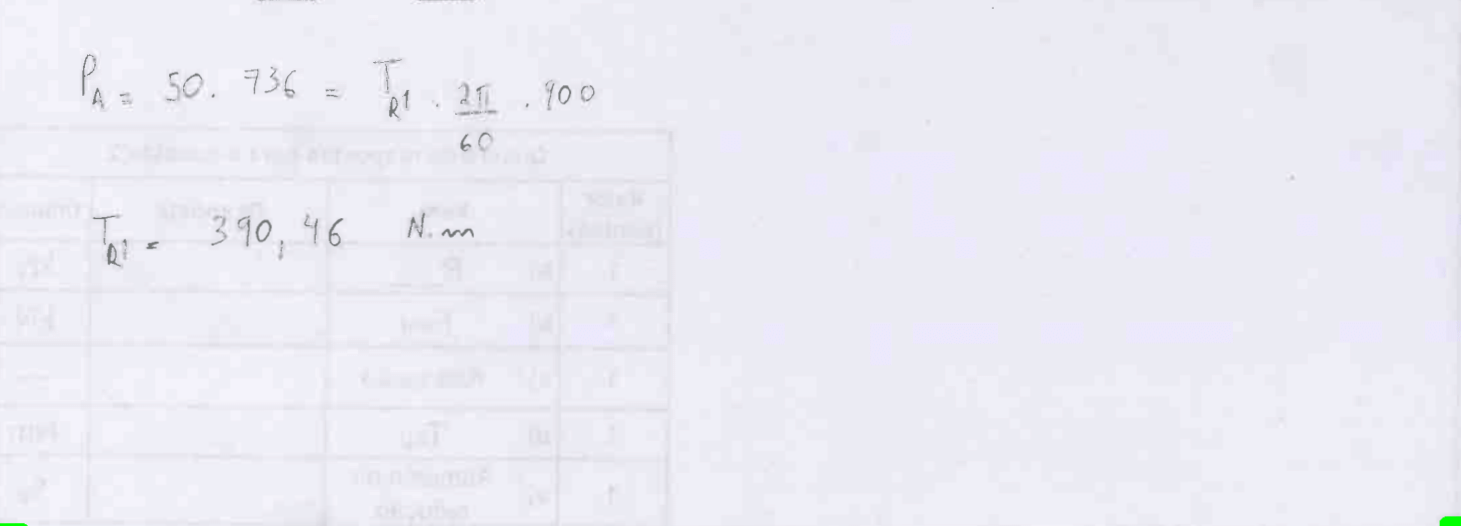 P_A = 50. 736 = T_R1 . 2π/60 . 900
T_R1 = 390,46 N.m